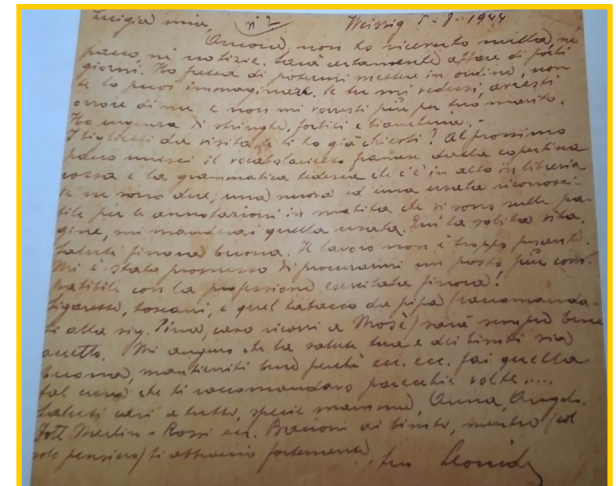 Luigia mia, n° 2 Weissig 5-8-1944
Ancora non ho ricevuto nulla, né
pacco né notizie. Sarà certamente affare di pochi
giorni. Ho fretta di potermi mettere in ordine, non
te lo puoi immaginare. Se tu mi vedessi, avresti
orrore di me e non mi vorresti più per tuo marito.
Ho urgenza di stringhe, forbici e biancheria.-
I biglietti da visita te li ho già chiesti? Al prossimo
pacco unisci il vocabolarietto dalla copertina
rossa e la grammatica tedesca che c'è in alto in libreria
Ve ne sono due, una nuova ed una usata riconosci-
bile per le annotazioni in matita che vi sono nelle pa-
gine, mi manderai quella usata. Qui la solita vita.
Salute finora buona. Il lavoro non è troppo pesante.
Mi è stato promesso di procurarmi un posto più com-
patibile con la professione esercitata finora!
Sigarette, toscani, e quel tabacco da pipa (raccomanda-
ti alla sig. Pina, caso ricorri a Mosè) sarà sempre bene
accetto. Mi auguro che la salute tua e dei bimbi sia
buona, mantieniti bene perché ecc. ecc. fai quella
tal cura che ti raccomandavo parecchie volte....
Saluti cari a tutti, specie mamma, Anna, Angelo.
Dott Merlin - Rossi ecc. Bacioni ai bimbi, mentre (col
solo pensiero) ti abbraccio fortemente, tuo